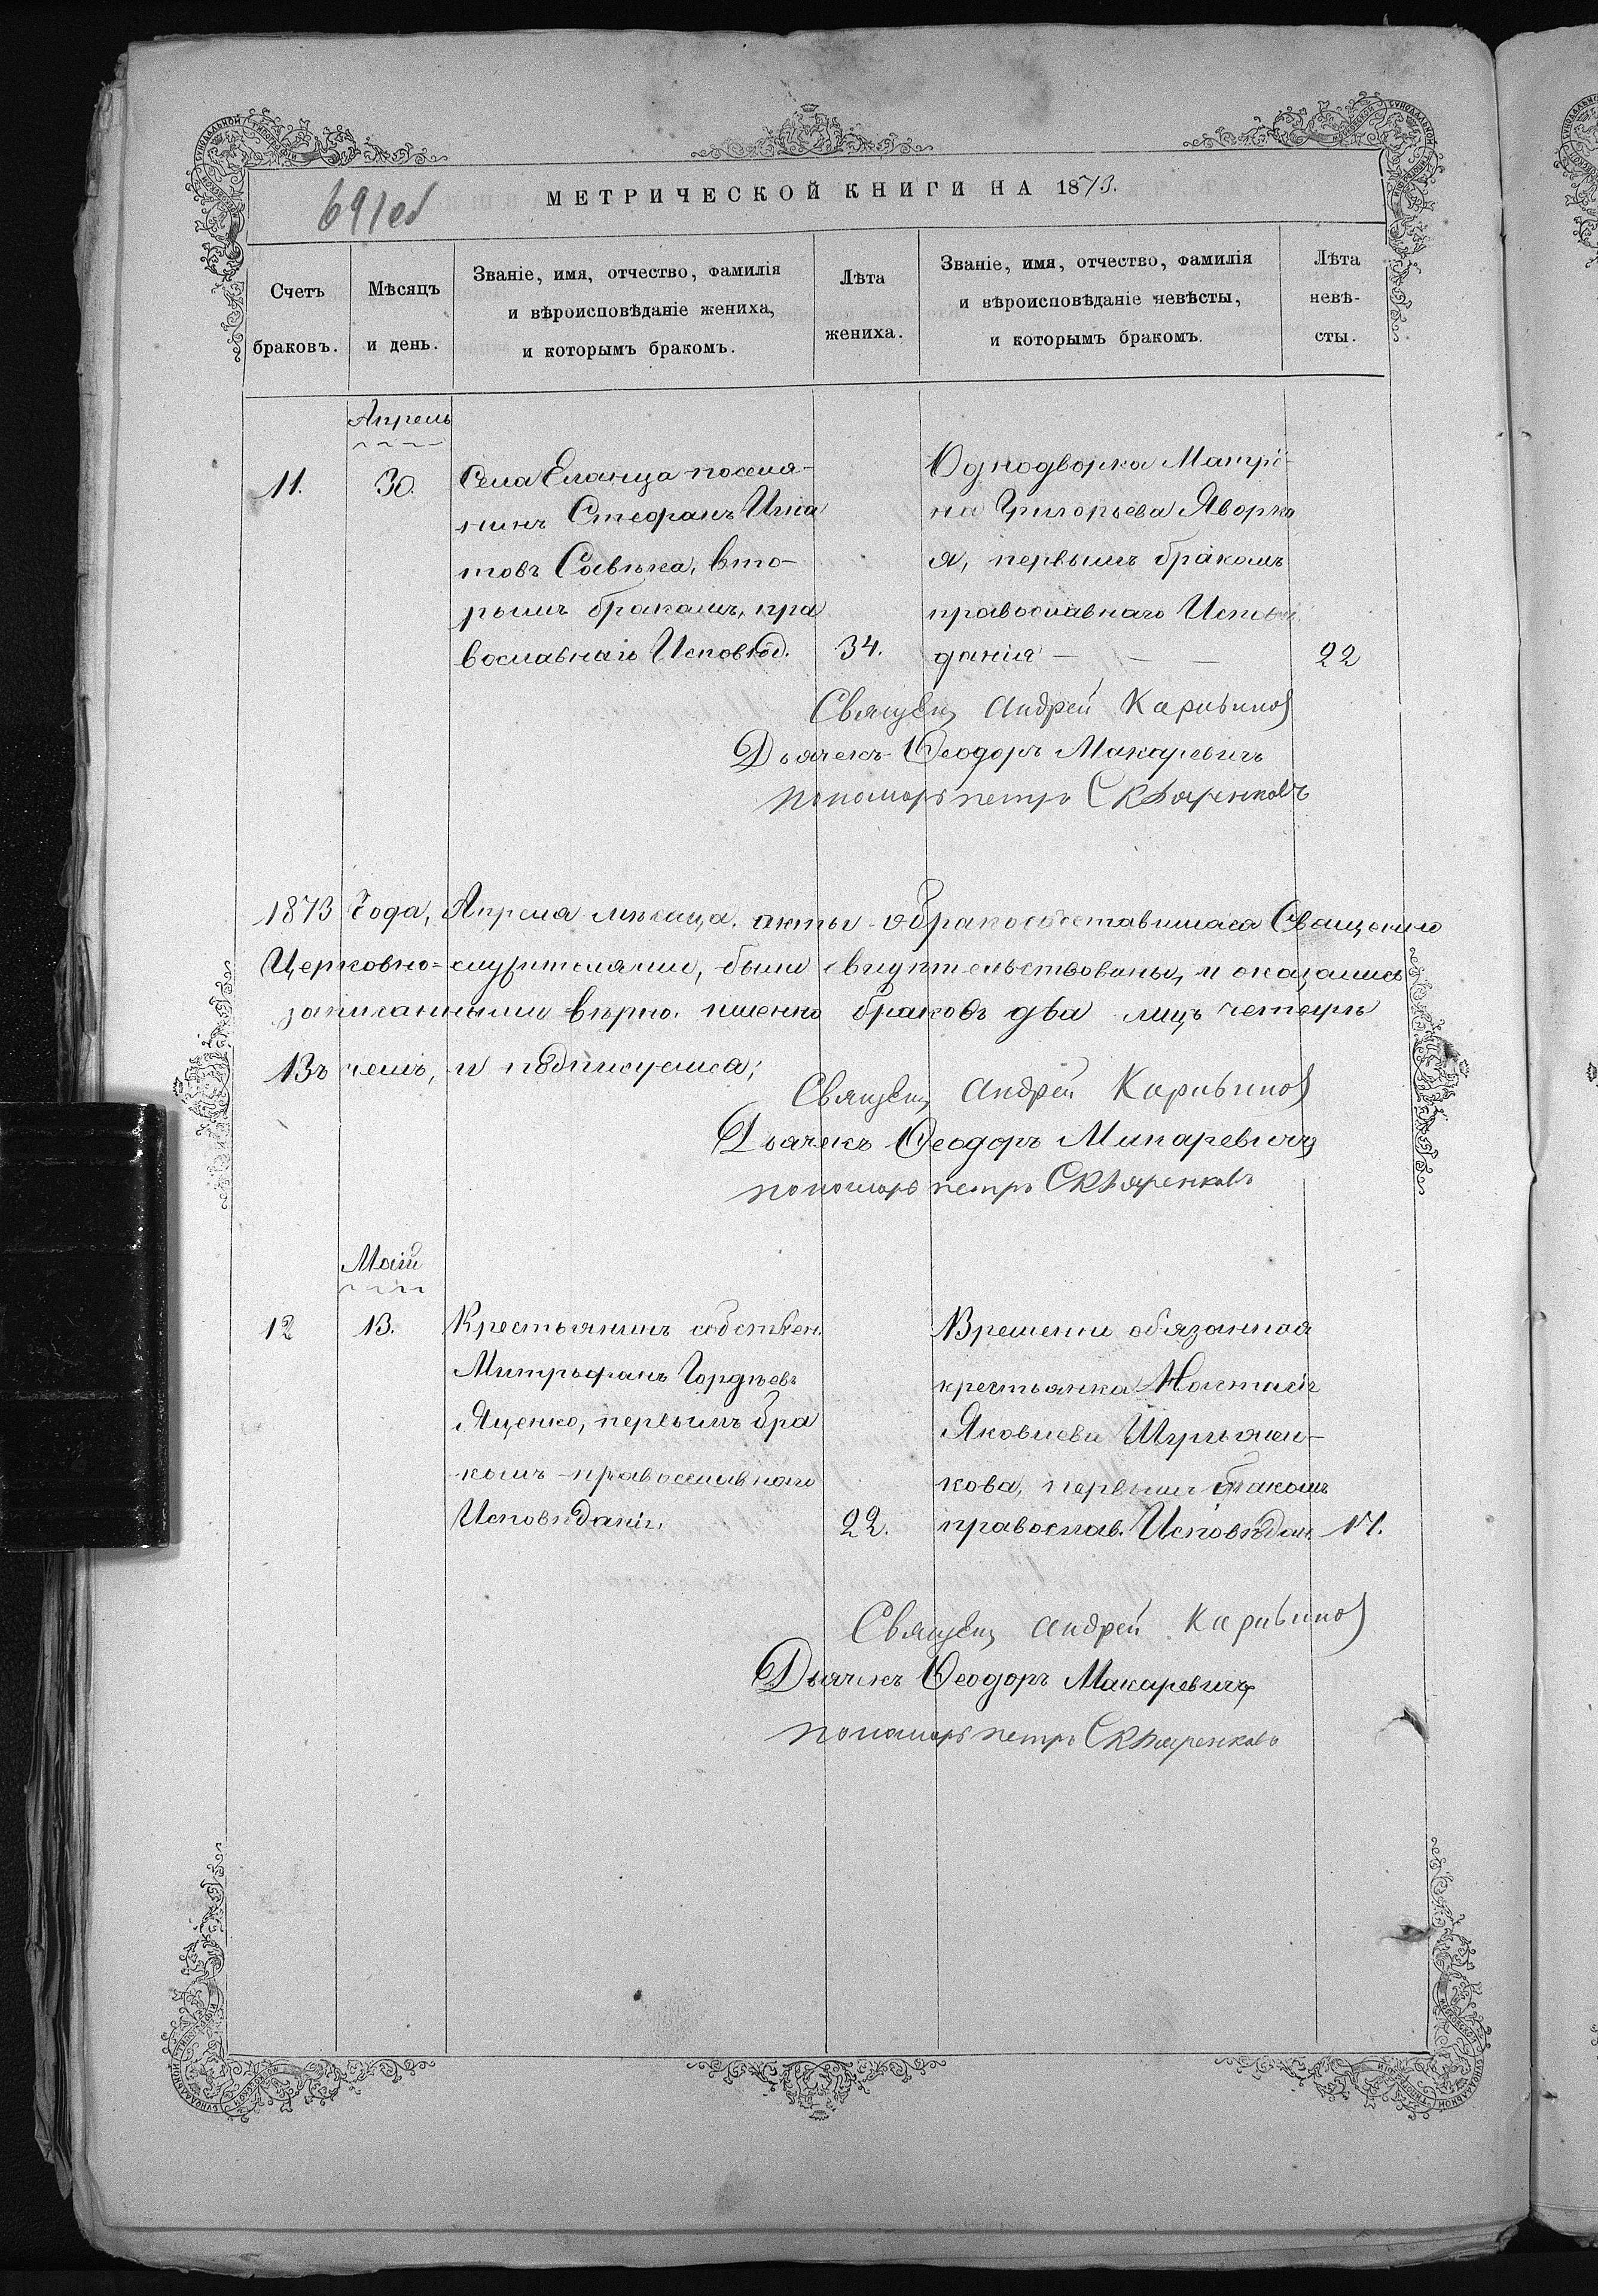 МЕТРИЧЕСКОЙ КНИГИ НА 1873.
691об
Счетъ браковъ.
Мѣсяцъ и день.
Званіе, имя, отчество, фамилія
и вѣроисповѣданіе жениха,
и которымъ бракомъ.
Лѣта жениха.
Званіе, имя, отчество, фамилія
и вѣроисповѣданіе невѣсты,
и которымъ бракомъ.
Лѣта невѣ-
сты.
Апрель
11.
30.
Села Еланца поселя-
нинъ Стефанъ Игна
товъ Савъка, вто-
рымъ бракомъ, пра
вославнаго Исповѣд.
34.
Однодворка Матрі-
на Григорьева Яворска
я, первымъ бракомъ
православнаго Исповѣ
данія — — —
22
Священ Андрей
Дьячекъ Ѳеодоръ Макаревичъ
пономарь петръ Скляренковъ
1873 Года, Апреля мѣсяца, акты о бракосоставшихся Священно
Церковно-служителями, были свидѣтельствованы, и оказались
записанными вѣрно, именно браковъ два лицъ четыре
Въ чемъ, и подписуемся;
Священ Андрей
Дьячекъ Ѳеодоръ Макаревичъ
пономарь петръ Скляренковъ
Маій
12
13.
Крестьянинъ собствен.
Митрофанъ Гордѣевъ
Яценко, первымъ бра
комъ православнаго
Исповѣданія.
22.
Временно обязанная
крестьянка Настасія
Яковлева
кова, первымъ бракомъ
православ. Исповѣдан.
17.
Священ Андрей
Дьячекъ Ѳеодоръ Макаревичъ
пономарь петръ Скляренковъ